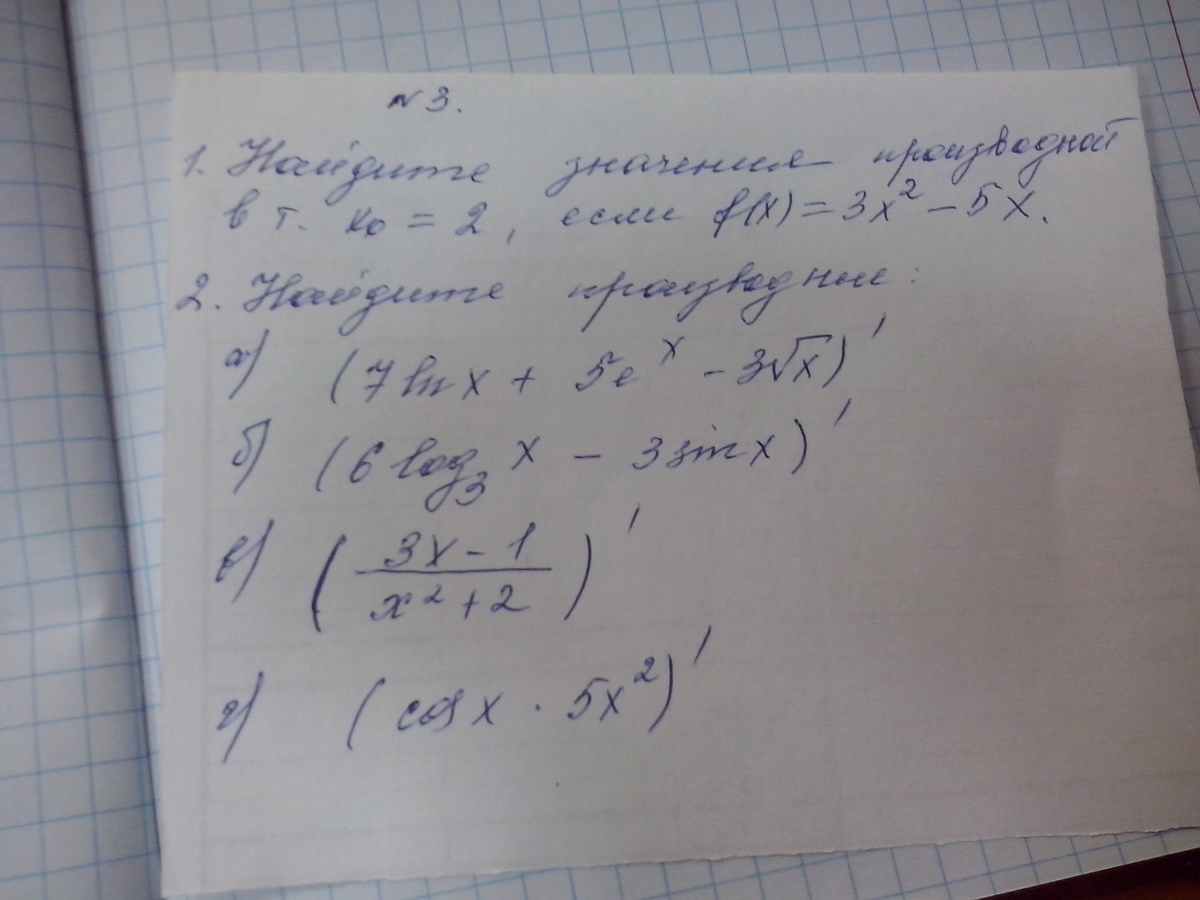 №3.
1. Найдите значения производной
в т. x₀ = 2, если f(x) = 3x² - 5x.
2. Найдите производные:
а) (7 ln x + 5e^x - 3√x)'
б) (6 log₃ x - 3 sin x)'
в) ((3x - 1)/(x² + 2))'
г) (cos x · 5x²)'